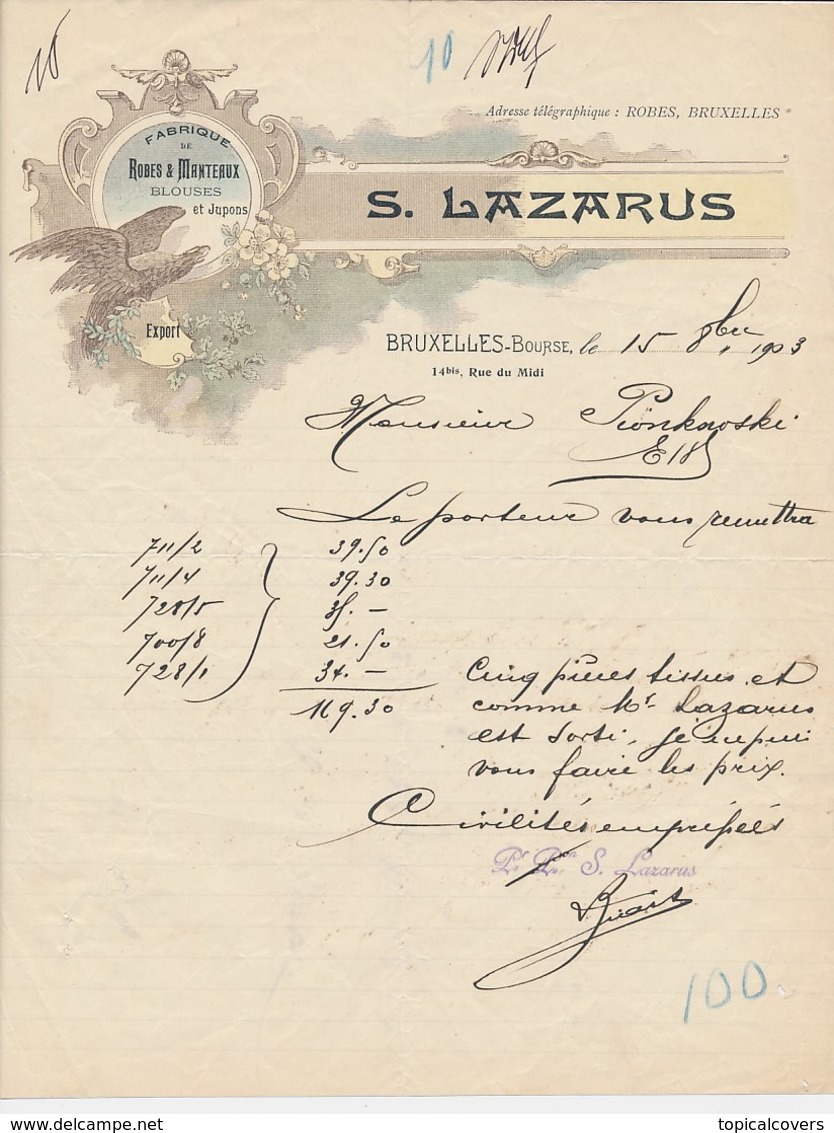 10
Adresse télégraphique : ROBES, BRUXELLES
FABRIQUE
DE
ROBES & MANTEAUX
BLOUSES
et Jupons
S. LAZARUS
Export
BRUXELLES-BOURSE, le 15 8bre 1903
14bis, Rue du Midi
Monsieur Pionkowski
E/V
Le porteur vous remettra
711/2 39.50
711/4 39.30
728/5 35.–
700/8 21.50
728/1 34.–
169.30
Cinq pièces tissus et
comme Mr Lazarus
est sorti, je n'puis
vous faire les prix.
Civilités empressées
Pr Pon S. Lazarus
100.
delcampe.net
topicalcovers